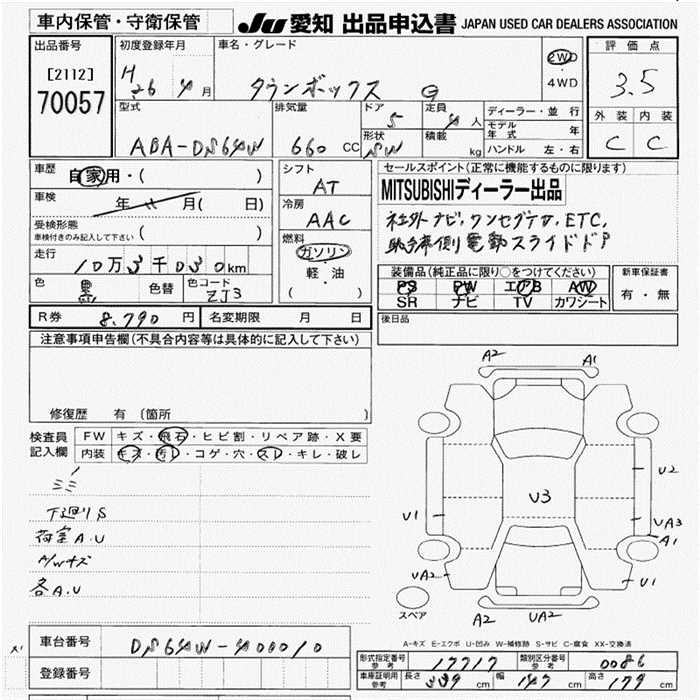 車内保管・守衛保管
JU 愛知 出品申込書 JAPAN USED CAR DEALERS ASSOCIATION
出品番号
[2112]
70057
初度登録年月
H 26 年 4 月
車名・グレード
タウンボックス G
2WD
・
4WD
評価点
3.5
外装 内装
C C
型式
ABA-DS64W
排気量
660 CC
ドア
5
形状
SW
定員
4人
積載
kg
ディーラー・並行
モデル年式 年
ハンドル 左・右
車歴
自家用・( )
車検
年 月( 日)
受検形態
車検付きのみ記入して下さい ( )
走行
10万3千030km
色
黒
色替
色コード
ZJ3
シフト
AT
冷房
AAC
燃料
ガソリン
・
軽・油
( )
セールスポイント(正常に機能するものに限ります)
MITSUBISHIディーラー出品
社外ナビ,ワンセグTV,ETC,
助手席側電動スライドドア
装備品(純正品に限り○をつけてください)
PS PW エアB AW
SR ナビ TV カワシート
新車保証書
有・無
R券 8,790 円
名変期限 月 日
後日品
注意事項申告欄(不具合内容等は具体的に記入して下さい)
修復歴 有(箇所 )
検査員
記入欄
FW キズ・飛石・ヒビ割・リペア跡・X要
内装 キズ・汚レ・コゲ・穴・スレ・キレ・破レ
下廻りS
荷室A.U
A/Wキズ
各A.U
A2
A1
U2
U3
U1
UA3
A1
UA2
U1
スペア
A2
UA2
A-キズ E-エクボ U-凹み W-補修跡 S-サビ C-腐食 XX-交換済
車台番号
DS64W-400010
登録番号
形式指定番号
参考
17717
類別区分番号
参考
0086
車庫証明用
参考
長さ 339 cm 幅 147 cm 高さ 179 cm